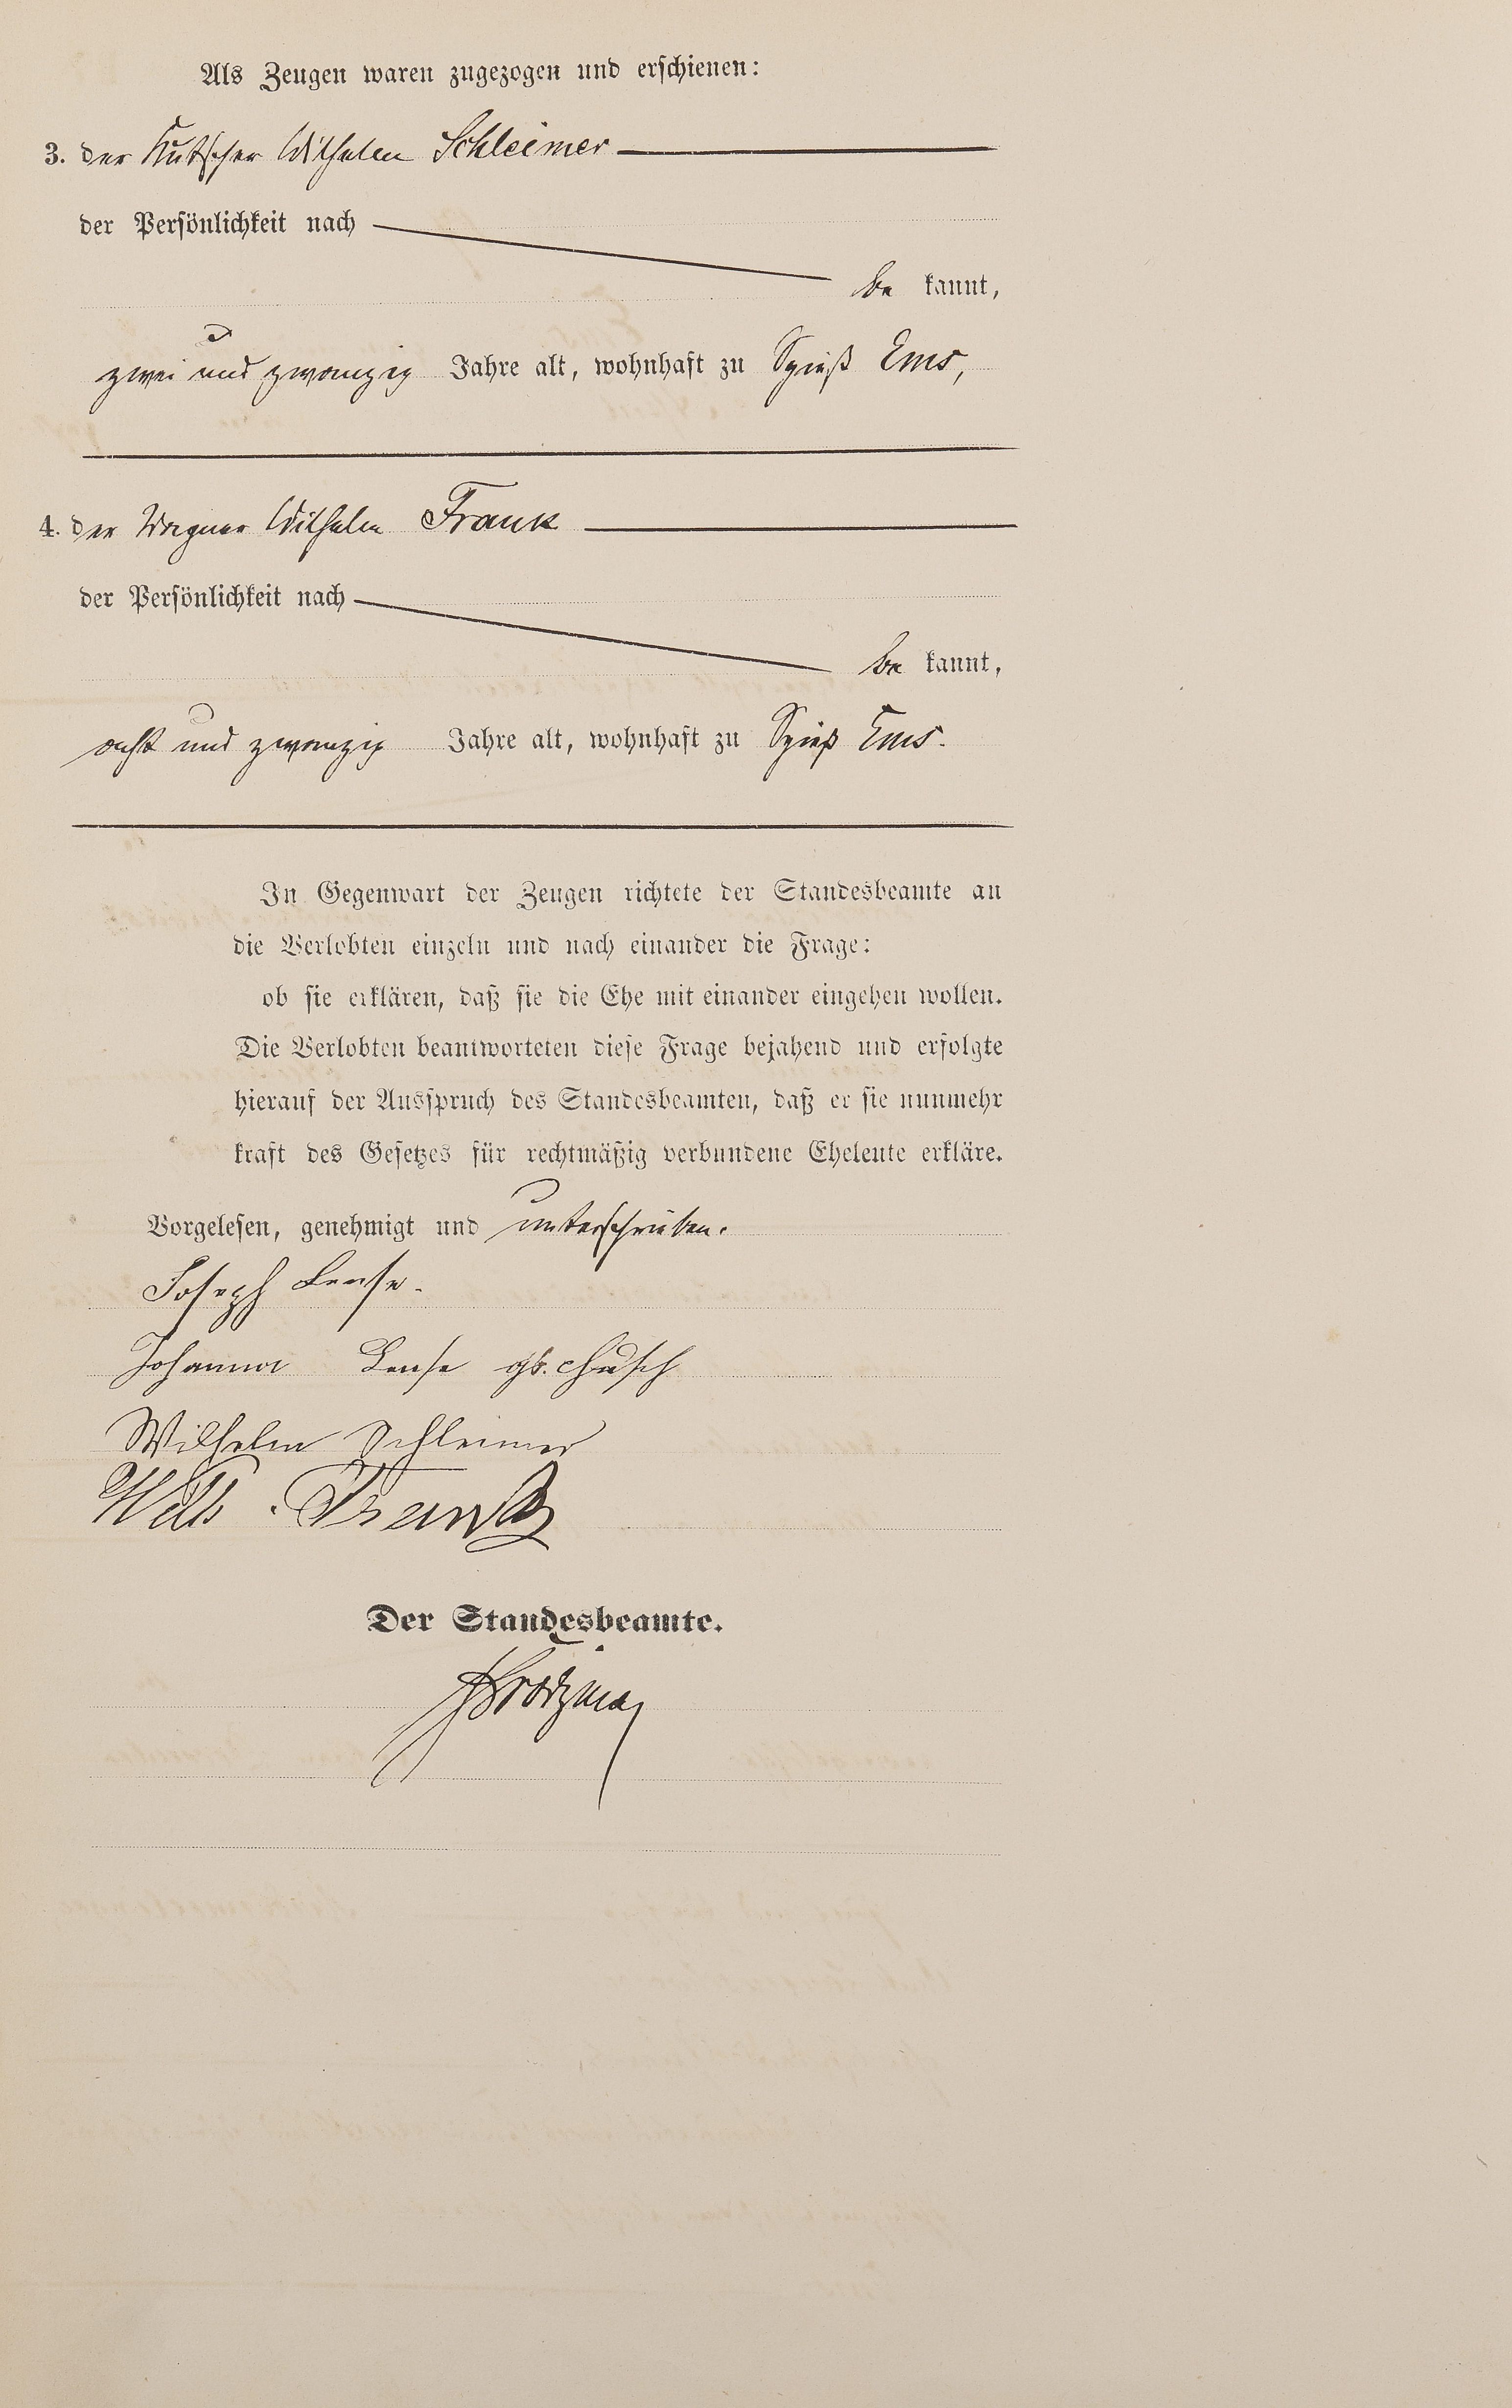 Als Zeugen waren zugezogen und erschienen:
3. der Kutscher Wilhelm Schleimer
der Persönlichkeit nach
be kannt,
zwei und zwanzig Jahre alt, wohnhaft zu Spieß Ems,
4. der Wagner Wilhelm Frank
der Persönlichkeit nach
be kannt,
acht und zwanzig Jahre alt, wohnhaft zu Spieß Ems.
In Gegenwart der Zeugen richtete der Standesbeamte an
die Verlobten einzeln und nach einander die Frage:
ob sie erklären, daß sie die Ehe mit einander eingehen wollen.
Die Verlobten beantworteten diese Frage bejahend und erfolgte
hierauf der Ausspruch des Standesbeamten, daß er sie nunmehr
kraft des Gesetzes für rechtmäßig verbundene Eheleute erkläre.
Vorgelesen, genehmigt und unterschrieben.
Joseph Lense.
Johanna Lense gb.
Wilhelm Schleimer
Wilh. Frank
Der Standesbeamte.